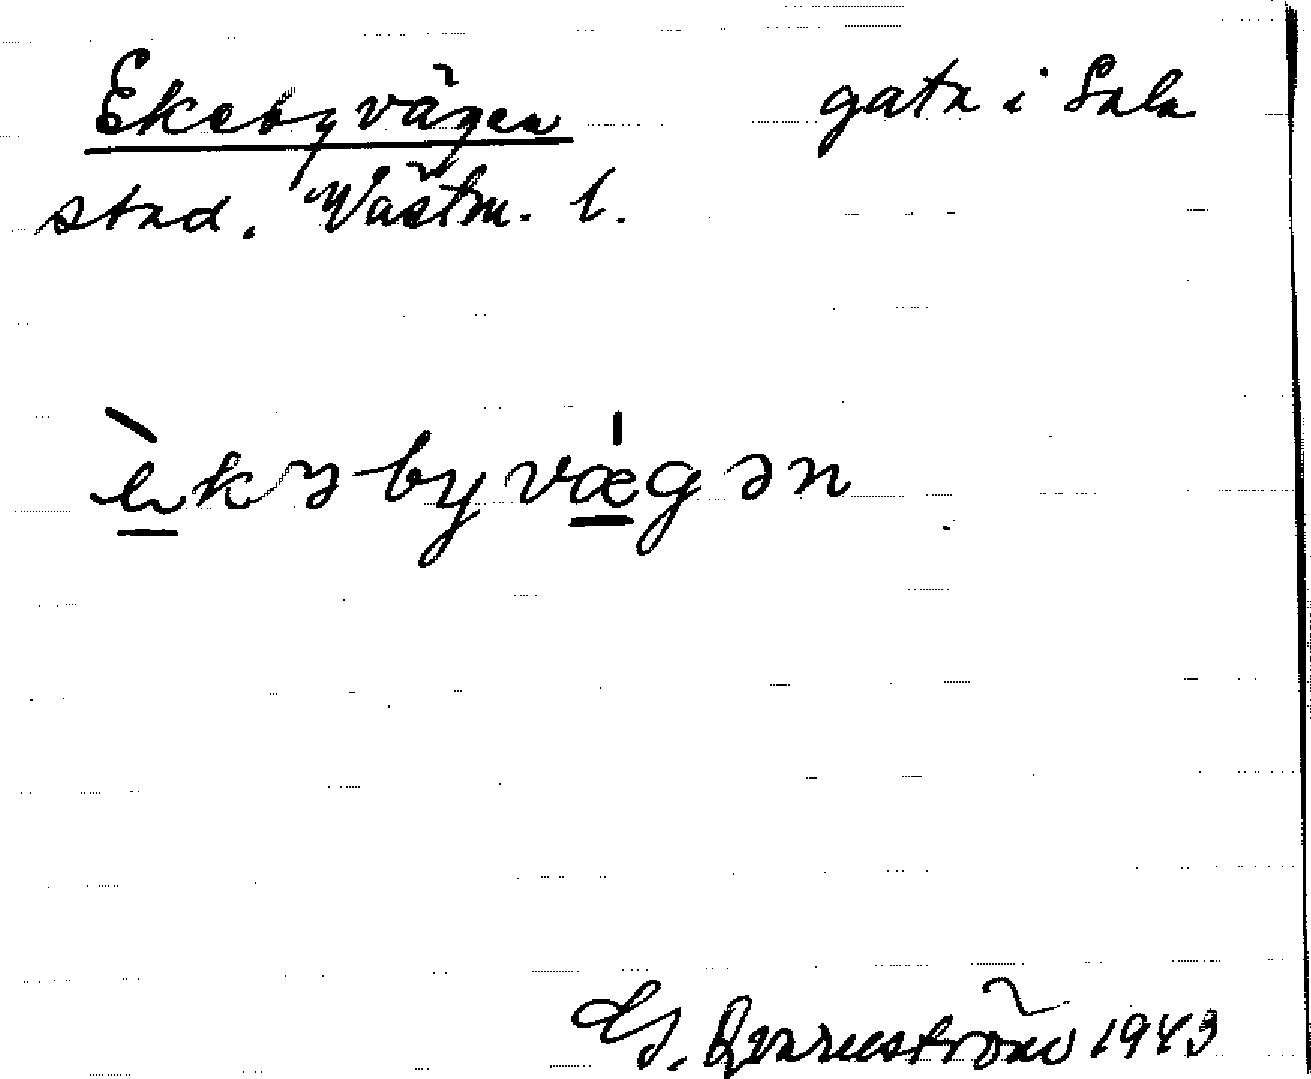 Ekebyvägen gata i Sala
stad. Västm. l.
èkəbyvǽgən
G. Qvarnström 1943